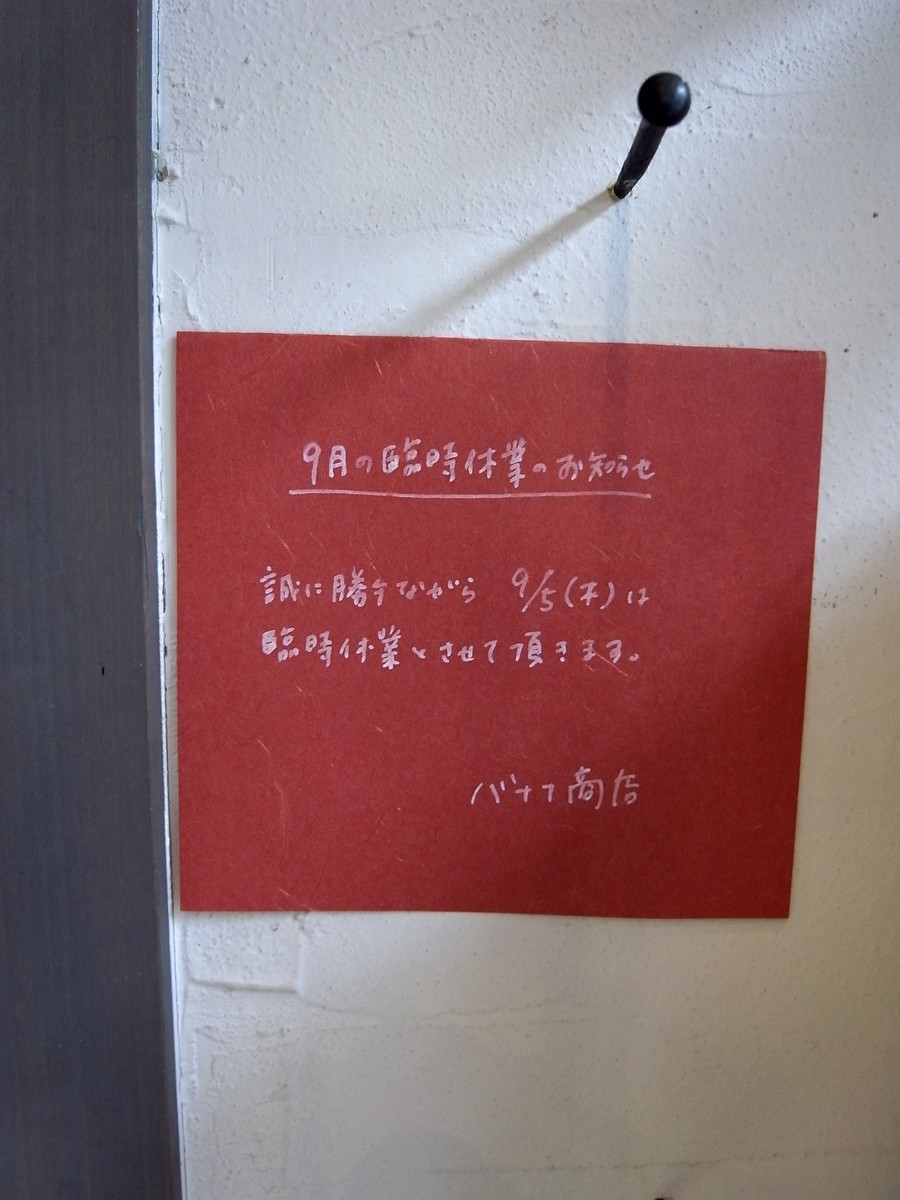 9月の臨時休業のお知らせ
誠に勝手ながら 9/5(木)は
臨時休業とさせて頂きます。
バナナ商店